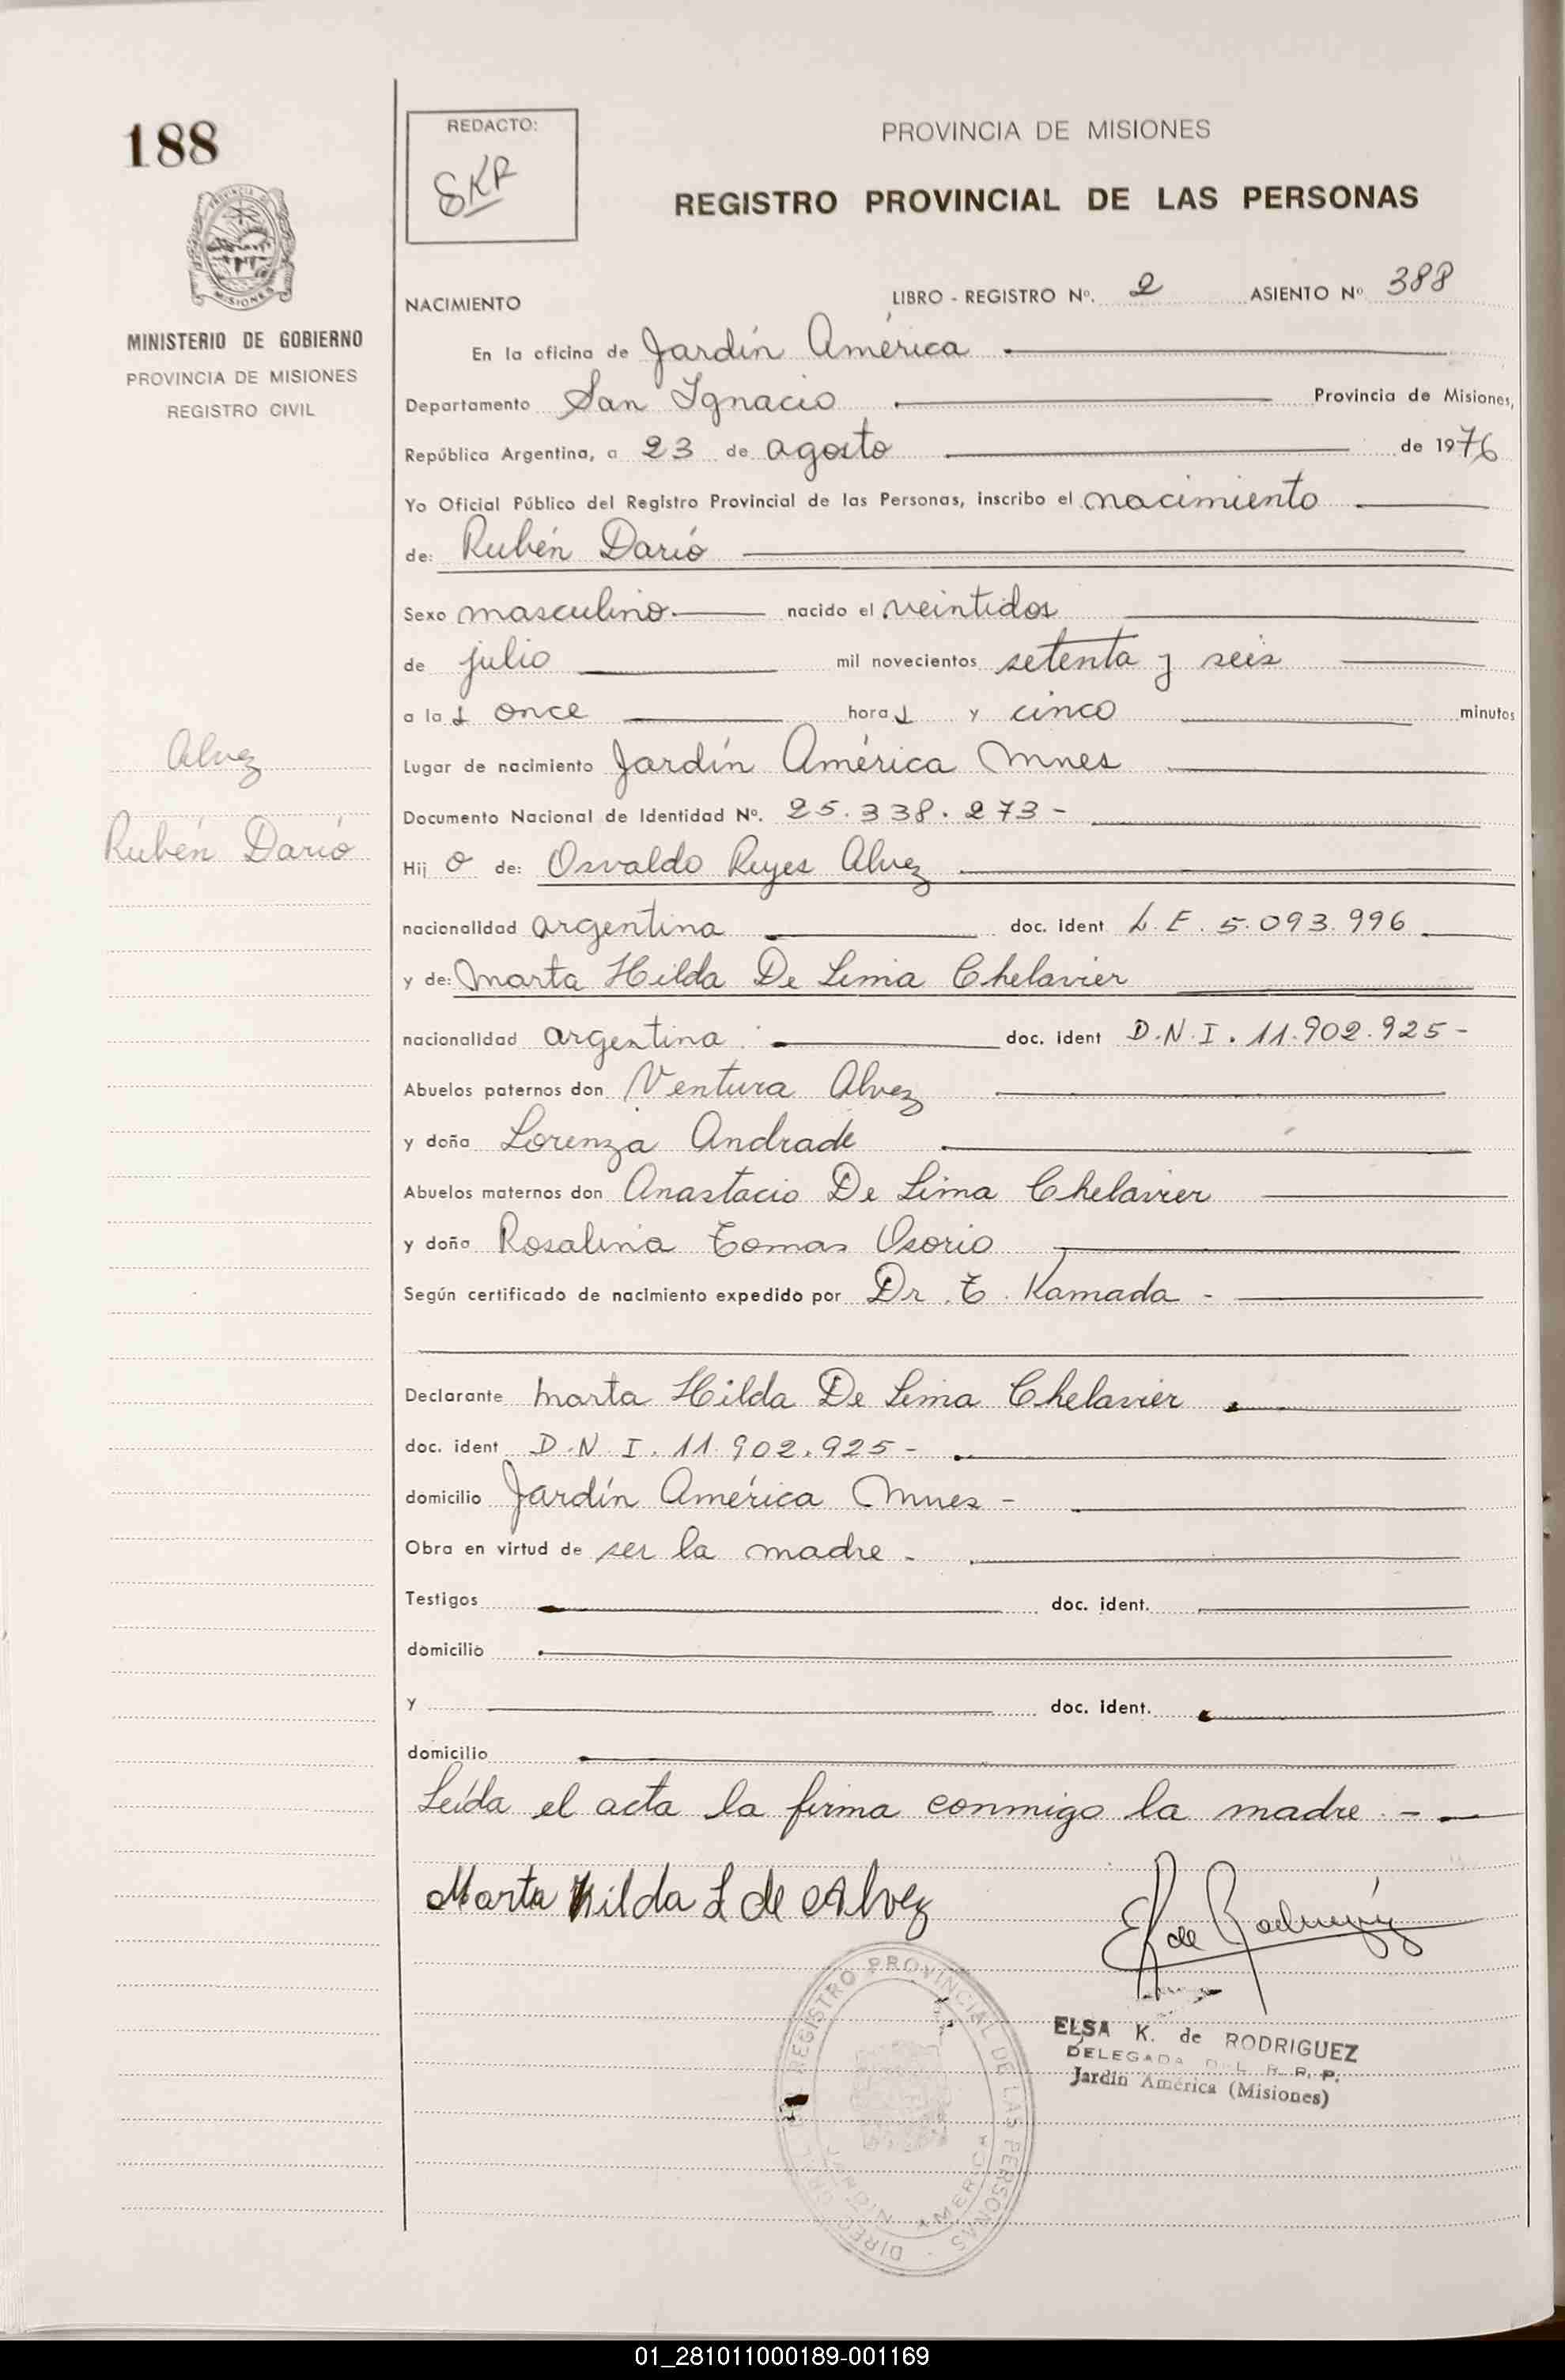 188
REDACTO:
SKR
PROVINCIA DE MISIONES
REGISTRO PROVINCIAL DE LAS PERSONAS
MISIONES
MINISTERIO DE GOBIERNO
PROVINCIA DE MISIONES
REGISTRO CIVIL
NACIMIENTO
LIBRO - REGISTRO Nº. 2 ASIENTO Nº 388
En la oficina de Jardín América
Departamento San Ignacio Provincia de Misiones,
República Argentina, a 23 de agosto de 1976
Yo Oficial Público del Registro Provincial de las Personas, inscribo el nacimiento
de: Rubén Darío
Sexo masculino nacido el veintidos
de julio mil novecientos setenta y seis
a la s once hora s y cinco minutos
Alvez
Lugar de nacimiento Jardín América Mnes
Documento Nacional de Identidad Nº. 25.338.273-
Rubén Darío
Hij o de: Osvaldo Reyes Alvez
nacionalidad argentina doc. ident L.E. 5.093.996
y de: Marta Hilda De Lima Chelavier
nacionalidad argentina doc. ident D.N.I. 11.902.925-
Abuelos paternos don Ventura Alvez
y doña Lorenza Andrade
Abuelos maternos don Anastacio De Lima Chelavier
y doña Rosalina Tomas Osorio
Según certificado de nacimiento expedido por Dr. T. Kamada -
Declarante Marta Hilda De Lima Chelavier
doc. ident D.N.I. 11.902.925-
domicilio Jardín América Mnes -
Obra en virtud de ser la madre -
Testigos doc. ident.
domicilio
y doc. ident.
domicilio
Leída el acta la firma conmigo la madre.-
Marta Hilda L de Alvez
EK de Rodriguez
REGISTRO PROVINCIAL DE LAS PERSONAS
ELSA K. de RODRIGUEZ
DELEGADA D L R. P.
Jardín América (Misiones)
01_281011000189-001169